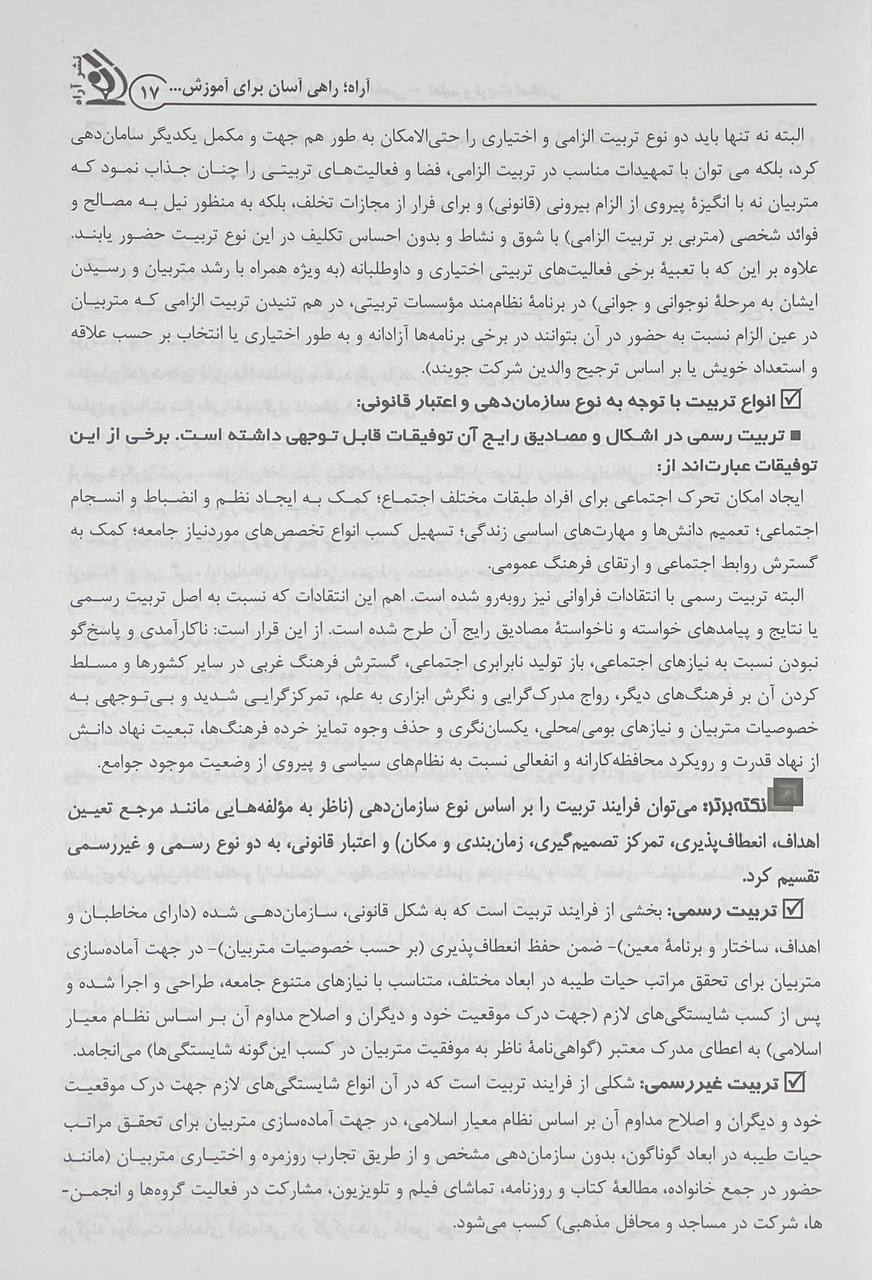 نشر آراه
۱۷
آراه؛ راهی آسان برای آموزش...
البته نه تنها باید دو نوع تربیت الزامی و اختیاری را حتی‌الامکان به طور هم جهت و مکمل یکدیگر سامان‌دهی
کرد، بلکه می توان با تمهیدات مناسب در تربیت الزامی، فضا و فعالیت‌های تربیتی را چنان جذاب نمود که
متربیان نه با انگیزهٔ پیروی از الزام بیرونی (قانونی) و برای فرار از مجازات تخلف، بلکه به منظور نیل به مصالح و
فوائد شخصی (متربی بر تربیت الزامی) با شوق و نشاط و بدون احساس تکلیف در این نوع تربیت حضور یابند.
علاوه بر این که با تعبیهٔ برخی فعالیت‌های تربیتی اختیاری و داوطلبانه (به ویژه همراه با رشد متربیان و رسیدن
ایشان به مرحلهٔ نوجوانی و جوانی) در برنامهٔ نظام‌مند مؤسسات تربیتی، در هم تنیدن تربیت الزامی که متربیان
در عین الزام نسبت به حضور در آن بتوانند در برخی برنامه‌ها آزادانه و به طور اختیاری یا انتخاب بر حسب علاقه
و استعداد خویش یا بر اساس ترجیح والدین شرکت جویند).
☑ انواع تربیت با توجه به نوع سازمان‌دهی و اعتبار قانونی:
■ تربیت رسمی در اشکال و مصادیق رایج آن توفیقات قابل توجهی داشته است. برخی از این
توفیقات عبارت‌اند از:
ایجاد امکان تحرک اجتماعی برای افراد طبقات مختلف اجتماع؛ کمک به ایجاد نظم و انضباط و انسجام
اجتماعی؛ تعمیم دانش‌ها و مهارت‌های اساسی زندگی؛ تسهیل کسب انواع تخصص‌های موردنیاز جامعه؛ کمک به
گسترش روابط اجتماعی و ارتقای فرهنگ عمومی.
البته تربیت رسمی با انتقادات فراوانی نیز روبه‌رو شده است. اهم این انتقادات که نسبت به اصل تربیت رسمی
یا نتایج و پیامدهای خواسته و ناخواستهٔ مصادیق رایج آن طرح شده است. از این قرار است: ناکارآمدی و پاسخ‌گو
نبودن نسبت به نیازهای اجتماعی، باز تولید نابرابری اجتماعی، گسترش فرهنگ غربی در سایر کشورها و مسلط
کردن آن بر فرهنگ‌های دیگر، رواج مدرک‌گرایی و نگرش ابزاری به علم، تمرکزگرایی شدید و بی‌توجهی به
خصوصیات متربیان و نیازهای بومی/محلی، یکسان‌نگری و حذف وجوه تمایز خرده فرهنگ‌ها، تبعیت نهاد دانش
از نهاد قدرت و رویکرد محافظه‌کارانه و انفعالی نسبت به نظام‌های سیاسی و پیروی از وضعیت موجود جوامع.
نکته‌برتر: می‌توان فرایند تربیت را بر اساس نوع سازمان‌دهی (ناظر به مؤلفه‌هایی مانند مرجع تعیین
اهداف، انعطاف‌پذیری، تمرکز تصمیم‌گیری، زمان‌بندی و مکان) و اعتبار قانونی، به دو نوع رسمی و غیررسمی
تقسیم کرد.
☑ تربیت رسمی: بخشی از فرایند تربیت است که به شکل قانونی، سازمان‌دهی شده (دارای مخاطبان و
اهداف، ساختار و برنامهٔ معین)- ضمن حفظ انعطاف‌پذیری (بر حسب خصوصیات متربیان)- در جهت آماده‌سازی
متربیان برای تحقق مراتب حیات طیبه در ابعاد مختلف، متناسب با نیازهای متنوع جامعه، طراحی و اجرا شده و
پس از کسب شایستگی‌های لازم (جهت درک موقعیت خود و دیگران و اصلاح مداوم آن بر اساس نظام معیار
اسلامی) به اعطای مدرک معتبر (گواهی‌نامهٔ ناظر به موفقیت متربیان در کسب این‌گونه شایستگی‌ها) می‌انجامد.
☑ تربیت غیررسمی: شکلی از فرایند تربیت است که در آن انواع شایستگی‌های لازم جهت درک موقعیت
خود و دیگران و اصلاح مداوم آن بر اساس نظام معیار اسلامی، در جهت آماده‌سازی متربیان برای تحقق مراتب
حیات طیبه در ابعاد گوناگون، بدون سازمان‌دهی مشخص و از طریق تجارب روزمره و اختیاری متربیان (مانند
حضور در جمع خانواده، مطالعهٔ کتاب و روزنامه، تماشای فیلم و تلویزیون، مشارکت در فعالیت گروه‌ها و انجمن-
ها، شرکت در مساجد و محافل مذهبی) کسب می‌شود.